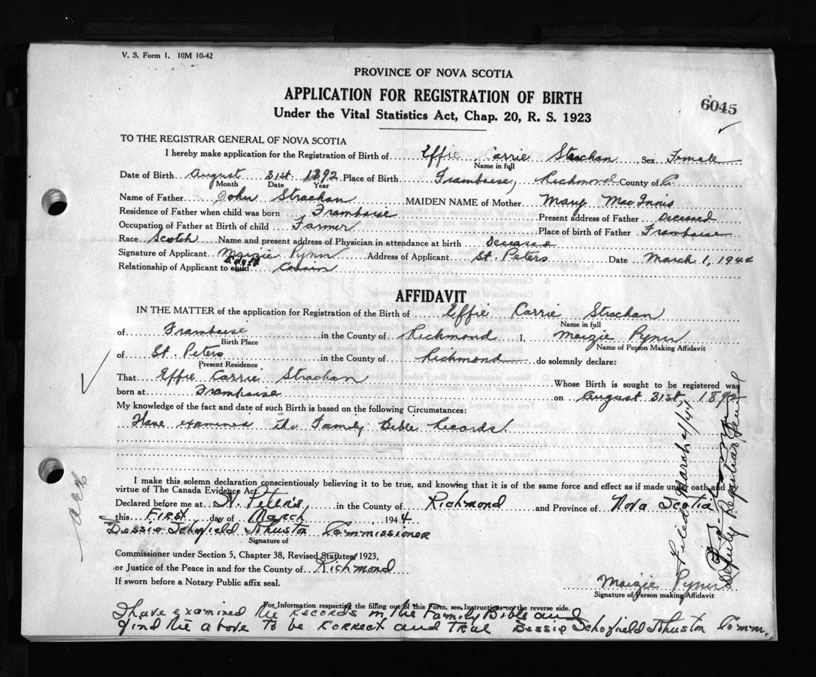 V. S. Form 1. 10M 10-42
PROVINCE OF NOVA SCOTIA
APPLICATION FOR REGISTRATION OF BIRTH
6045
Under the Vital Statistics Act, Chap. 20, R. S. 1923
TO THE REGISTRAR GENERAL OF NOVA SCOTIA
I hereby make application for the Registration of Birth of Effie Carrie Strachan Sex Female
Name in full
Date of Birth August 31st 1892 Place of Birth Framboise, Richmond County of
Month Date Year
Name of Father John Strachan MAIDEN NAME of Mother Mary MacInnis
Residence of Father when child was born Framboise Present address of Father Deceased
Occupation of Father at Birth of child Farmer Place of birth of Father Framboise
Race Scotch Name and present address of Physician in attendance at birth deceased
Signature of Applicant Maizie Pynn Address of Applicant St. Peters Date March 1, 1944
Relationship of Applicant to child Cousin
AFFIDAVIT
IN THE MATTER of the application for Registration of the Birth of Effie Carrie Strachan
Name in full
of Framboise in the County of Richmond I, Maizie Pynn
Birth Place Name of Person Making Affidavit
of St. Peters in the County of Richmond do solemnly declare:
Present Residence
That Effie Carrie Strachan Whose Birth is sought to be registered was
born at Framboise on August 31st, 1892
My knowledge of the fact and date of such Birth is based on the following Circumstances:
Have examined the Family Bible Records.
I make this solemn declaration conscientiously believing it to be true, and knowing that it is of the same force and effect as if made under oath, and
virtue of The Canada Evidence Act.
Declared before me at St. Peter's, in the County of Richmond and Province of Nova Scotia
this First day of March, 1944
Bessie Schofield Johnston Commissioner
Signature of
Commissioner under Section 5, Chapter 38, Revised Statutes 1923,
or Justice of the Peace in and for the County of Richmond
If sworn before a Notary Public affix seal.
Maizie Pynn
Signature of Person making Affidavit
For Information respecting the filling out of this Form, see Instructions on the reverse side.
I have examined the records in the Family Bible and
find the above to be correct and true Bessie Schofield Johnston Comm.
March 4/44
Deputy Registrar General